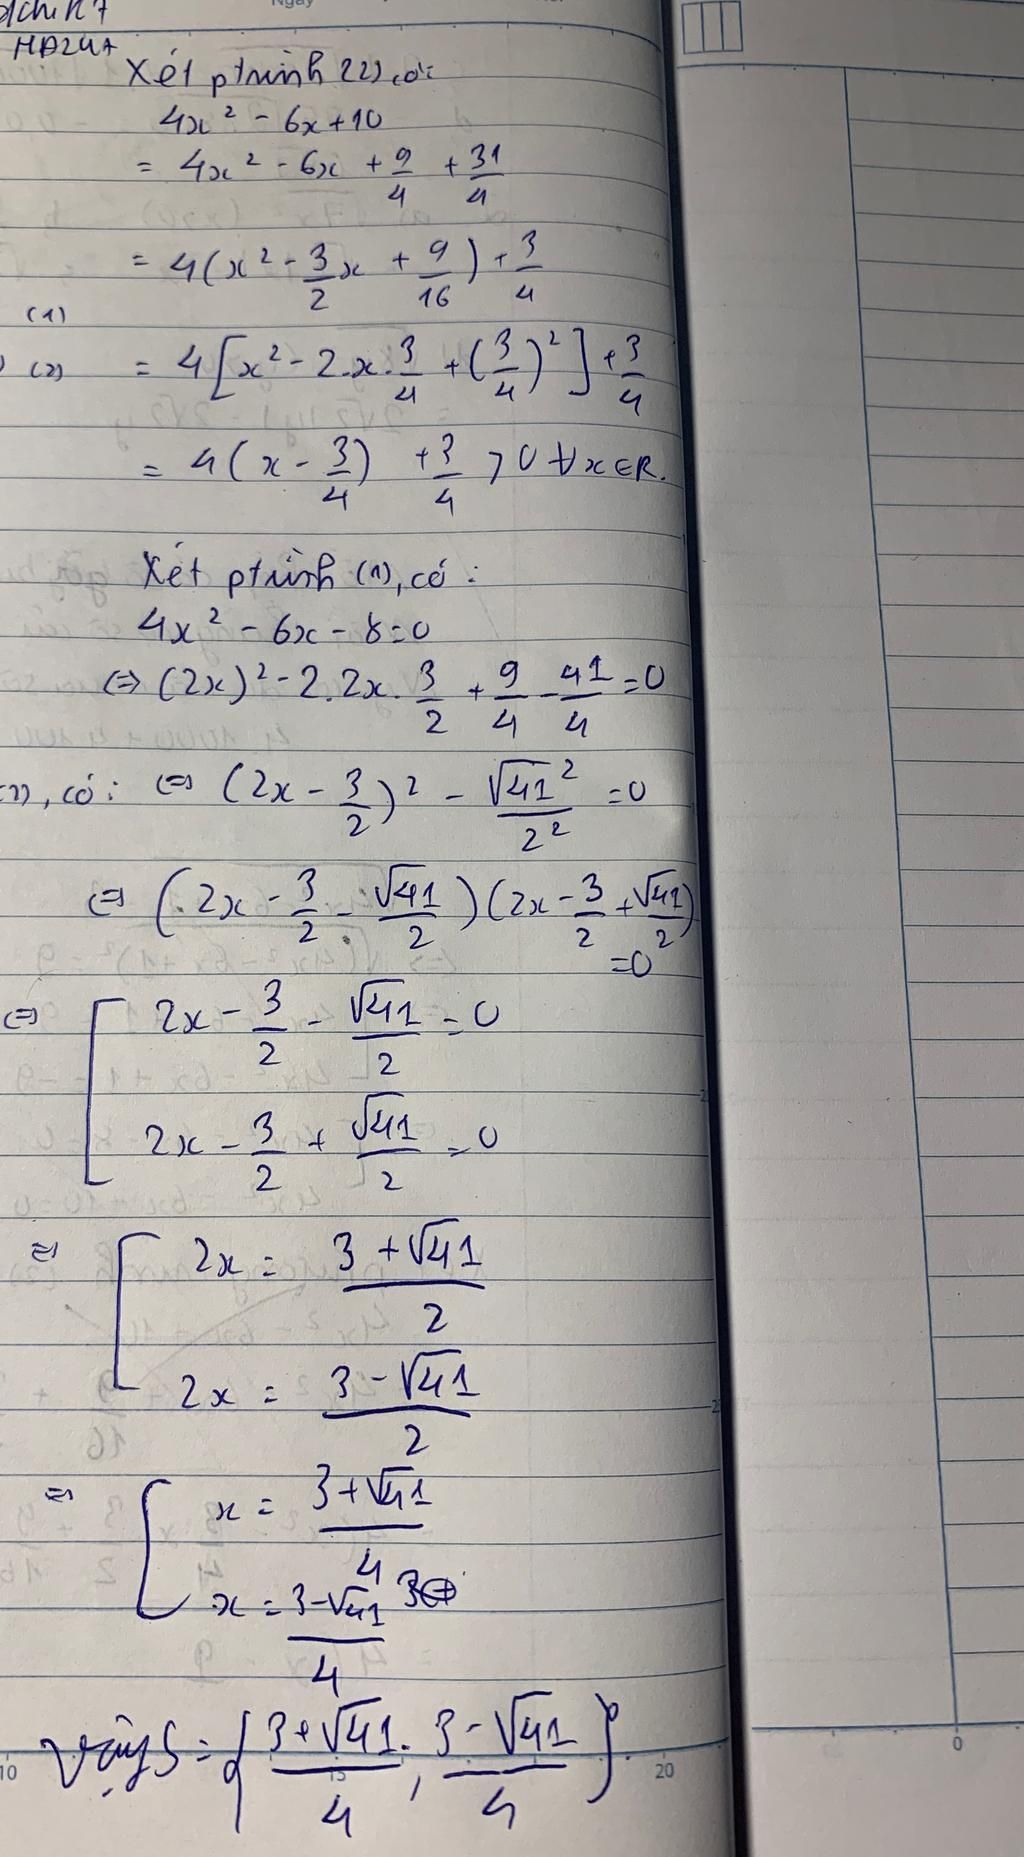 HD247
Xét ptrình (2), có:
4x² - 6x + 10
= 4x² - 6x + 9/4 + 31/4
= 4(x² - 3/2 x + 9/16) + 3/4
(1)
(2) = 4[x² - 2.x.3/4 + (3/4)²] + 3/4
= 4(x - 3/4) + 3/4 > 0 ∀x∈R.
Xét ptrình (1), có:
4x² - 6x - 8 = 0
⇔ (2x)² - 2.2x.3/2 + 9/4 - 41/4 = 0
, có: ⇔ (2x - 3/2)² - √41²/2² = 0
⇔ (2x - 3/2 - √41/2)(2x - 3/2 + √41/2) = 0
⇔ [ 2x - 3/2 - √41/2 = 0
2x - 3/2 + √41/2 = 0
⇔ [ 2x = (3 + √41)/2
2x = (3 - √41)/2
⇔ [ x = (3 + √41)/4
x = (3 - √41)/4
Vậy S = {(3 + √41)/4 ; (3 - √41)/4}
10 15 20 0